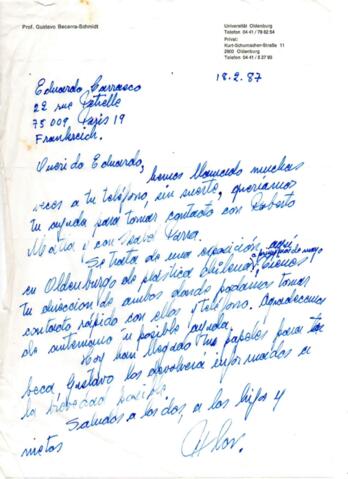 Prof. Gustavo Becerra-Schmidt
Universität Oldenburg
Telefon 04 41 /
Privat:
Kurt-Schumacher-Straße 11
2900 Oldenburg
Telefon 04 41 /
18.2.87
Eduardo Carrasco
22 rue
75009 Paris 19
Frankreich.
Querido Eduardo,
hemos llamado muchas
veces a tu teléfono, sin suerte, queríamos
tu ayuda para tomar contacto con Roberto
Matta y con Isabel Parra.
Se trata de una exposición, aquí
en Oldenburg de plástica chilena,
tu dirección de ambos donde podamos tomar
contacto rápido con ellos y teléfono. Agradecemos
de antemano tu posible ayuda.
Hoy han llegado los papeles para tu
beca, Gustavo los devolverá informados a
la brevedad posible.
Saludos a los dos, a los hijos y
nietos
Flor.